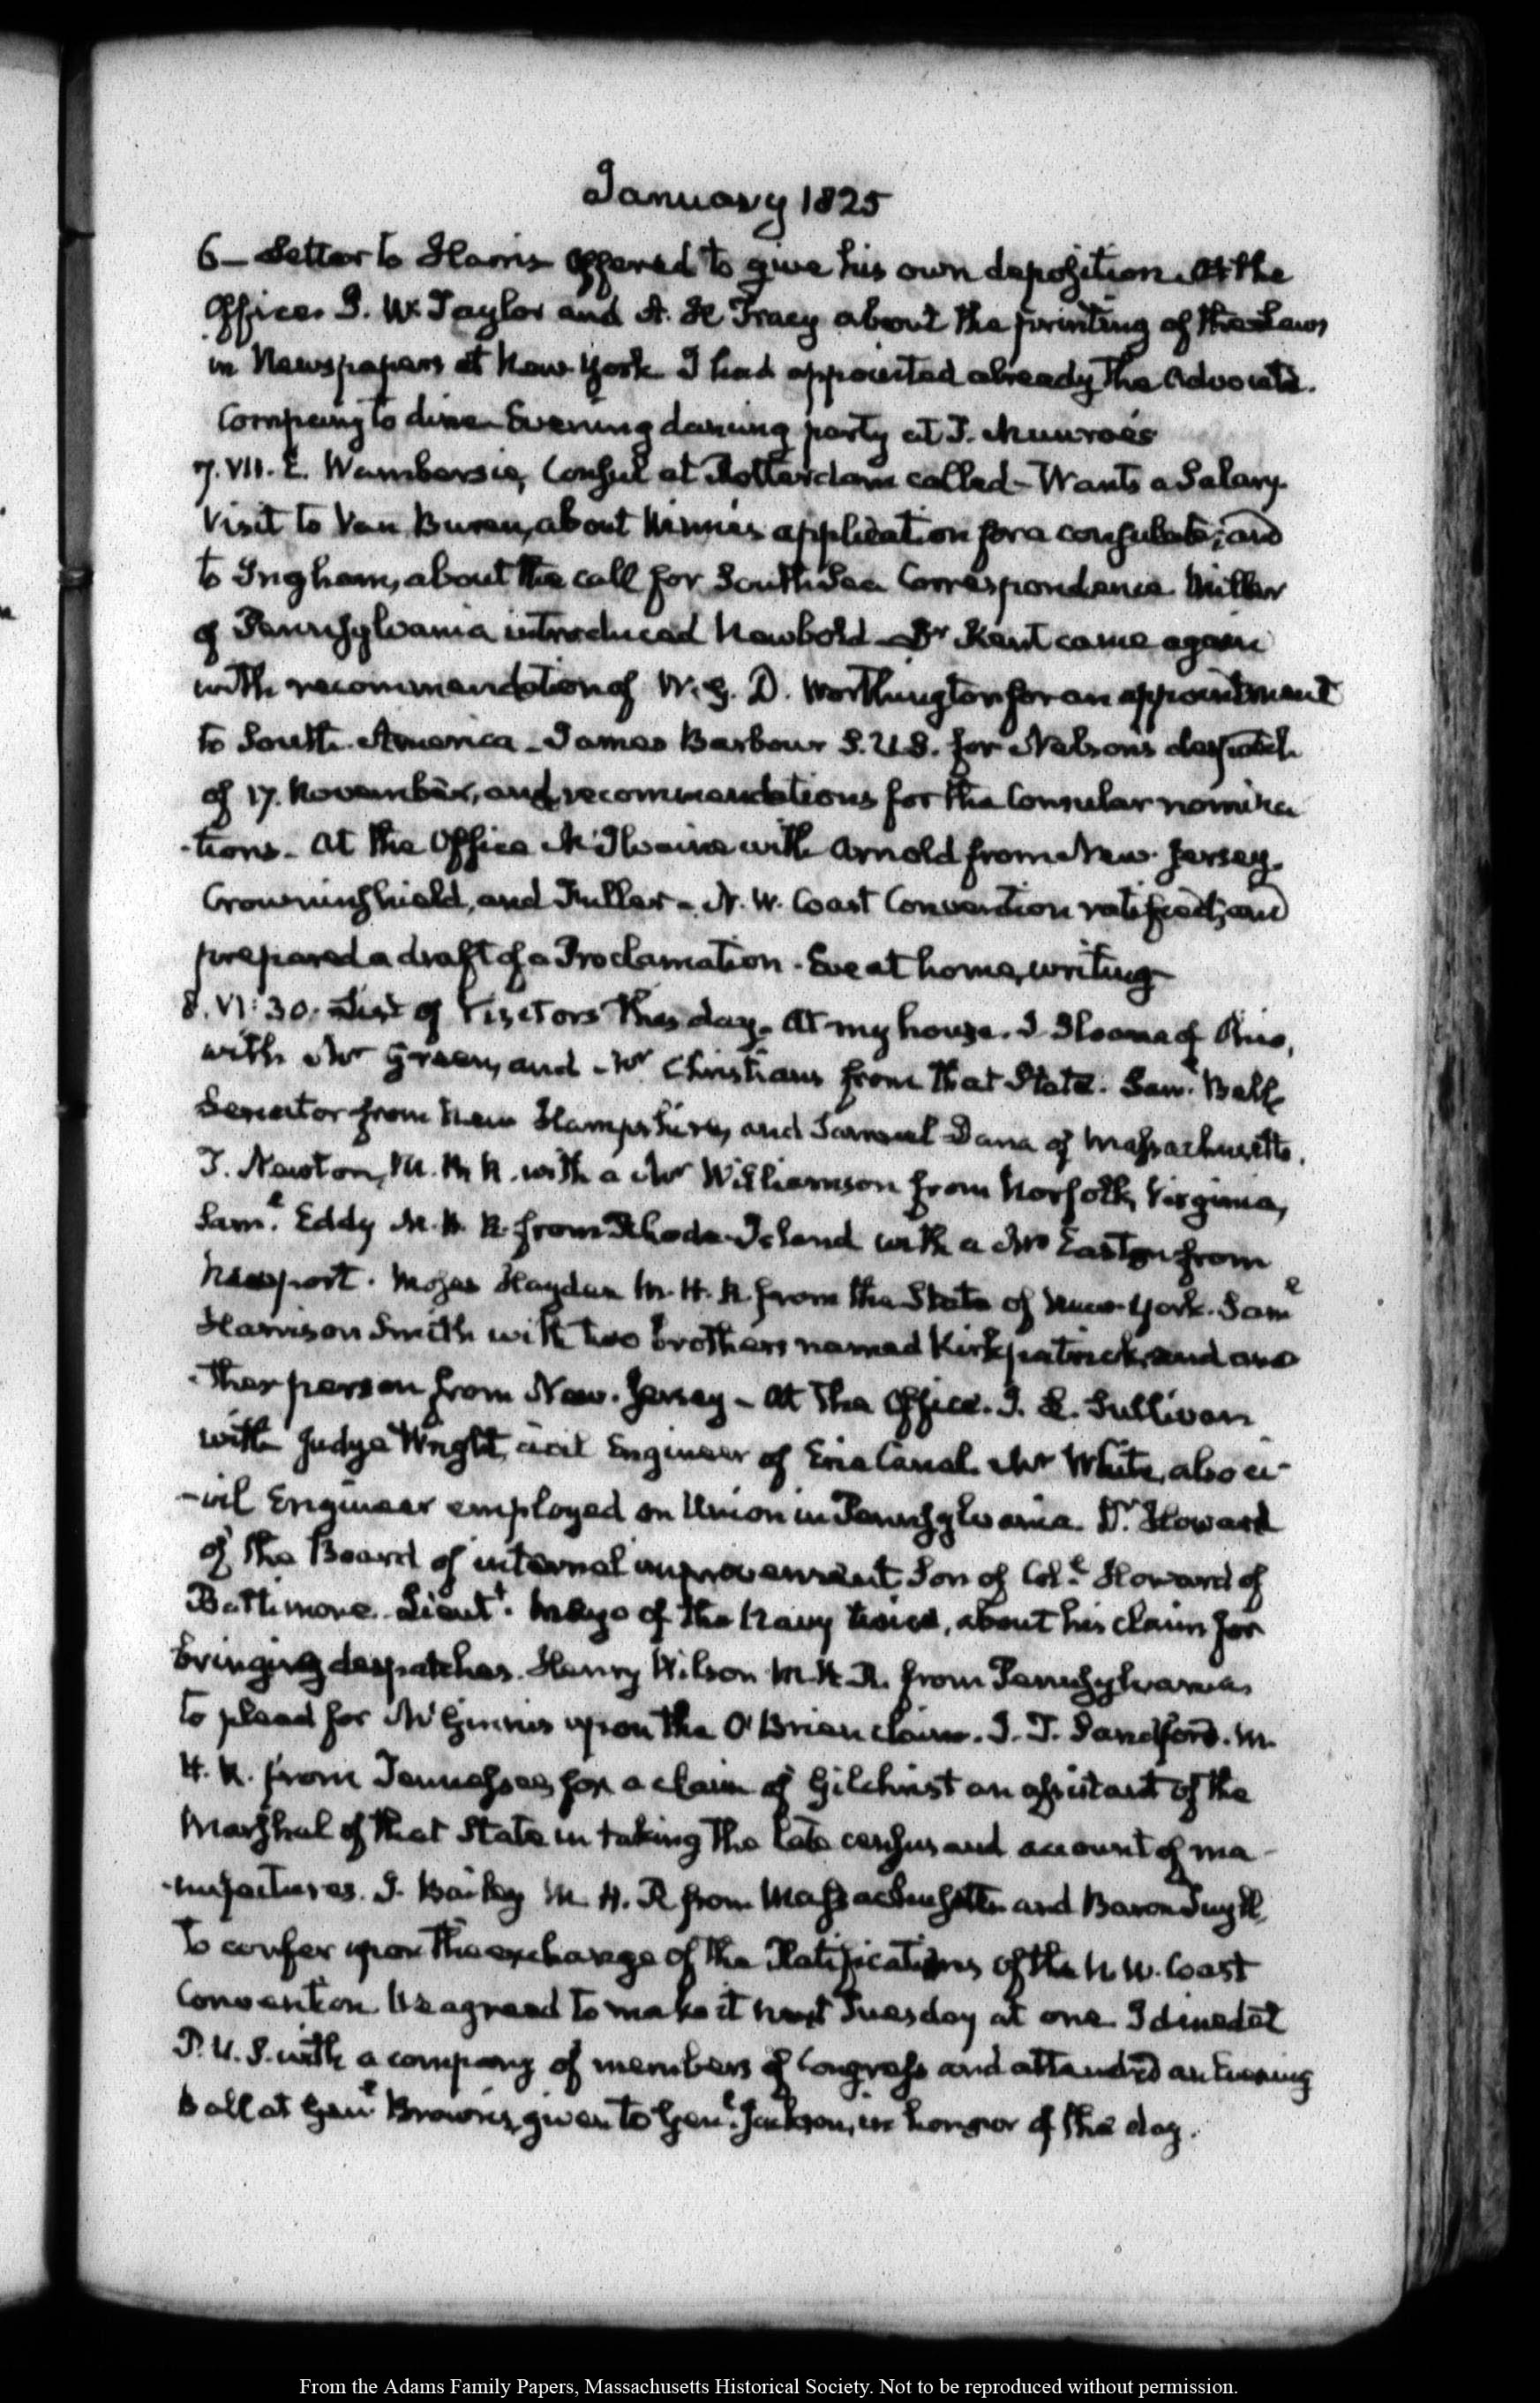 January 1825
6— Letter to Harris offered to give his own deposition. At the
Office. J. W. Taylor and A. H. Tracy about the printing of the Laws
in Newspapers at New-York. I had appointed already the Advocate.
Company to dine. Evening dancing party at T. Munroe's
7. VII. E. Wambersie, Consul at Rotterdam called—Wants a Salary.
Visit to Van Buren, about application for a consulate; and
to Ingham, about the call for South Sea Correspondence. Miller
of Pennsylvania introduced Newbold—Dr Kent came again
with recommendation of W. G. D. Worthington for an appointment
to South-America—James Barbour S.U.S. for Nelson's despatch
of 17. November, and recommendations for the Consular nomina
-tions. At the Office McIlvaine with Arnold from New-Jersey.
Crowninshield, and Fuller—N. W. Coast Convention ratified, and
prepared a draft of a Proclamation. Eve at home, writing
8. VI:30. List of Visitors this day. At my house. J Sloane of Ohio,
with Mr Green, and Mr Christians from that State. Saml. Bell
Senator from New Hampshire, and Samuel Dana of Massachusetts.
T. Newton, M. H. R. with a Mr Williamson from Norfolk, Virginia,
Saml. Eddy M. H. R from Rhode-Island with a Mr Easton from
Newport. Moses Hayden M. H. R. from the State of New-York. Saml
Harrison Smith with two brothers named Kirkpatrick, and ano
-ther person from New-Jersey—At the Office. J. L. Sullivan
with Judge Wright, civil Engineer of Erie Canal. Mr White, also ci-
-vil Engineer employed on Union in Pennsylvania. Dr. Howard
of the Board of internal improvement Son of Coll. Howard of
Baltimore. Lieutt. Mayo of the Navy twice, about his claim for
bringing despatches. Henry Wilson M. H. R. from Pennsylvania,
to plead for McGinnis upon the O'Brien claim. J. T. Sandford. M.
H. R. from Tennessee, for a claim of Gilchrist an assistant of the
Marshal of that State in taking the late census and account of ma-
-nufactures. J. Bailey M. H. R from Massachusetts and Baron Tuyll,
to confer upon the exchange of the Ratifications of the N. W. Coast
Convention. We agreed to make it next Tuesday at one. I dined at
P. U. S. with a company of members of Congress and attended an Evening
ball at Genl Brown's, given to Genl. Jackson, in honor of the day.
From the Adams Family Papers, Massachusetts Historical Society. Not to be reproduced without permission.